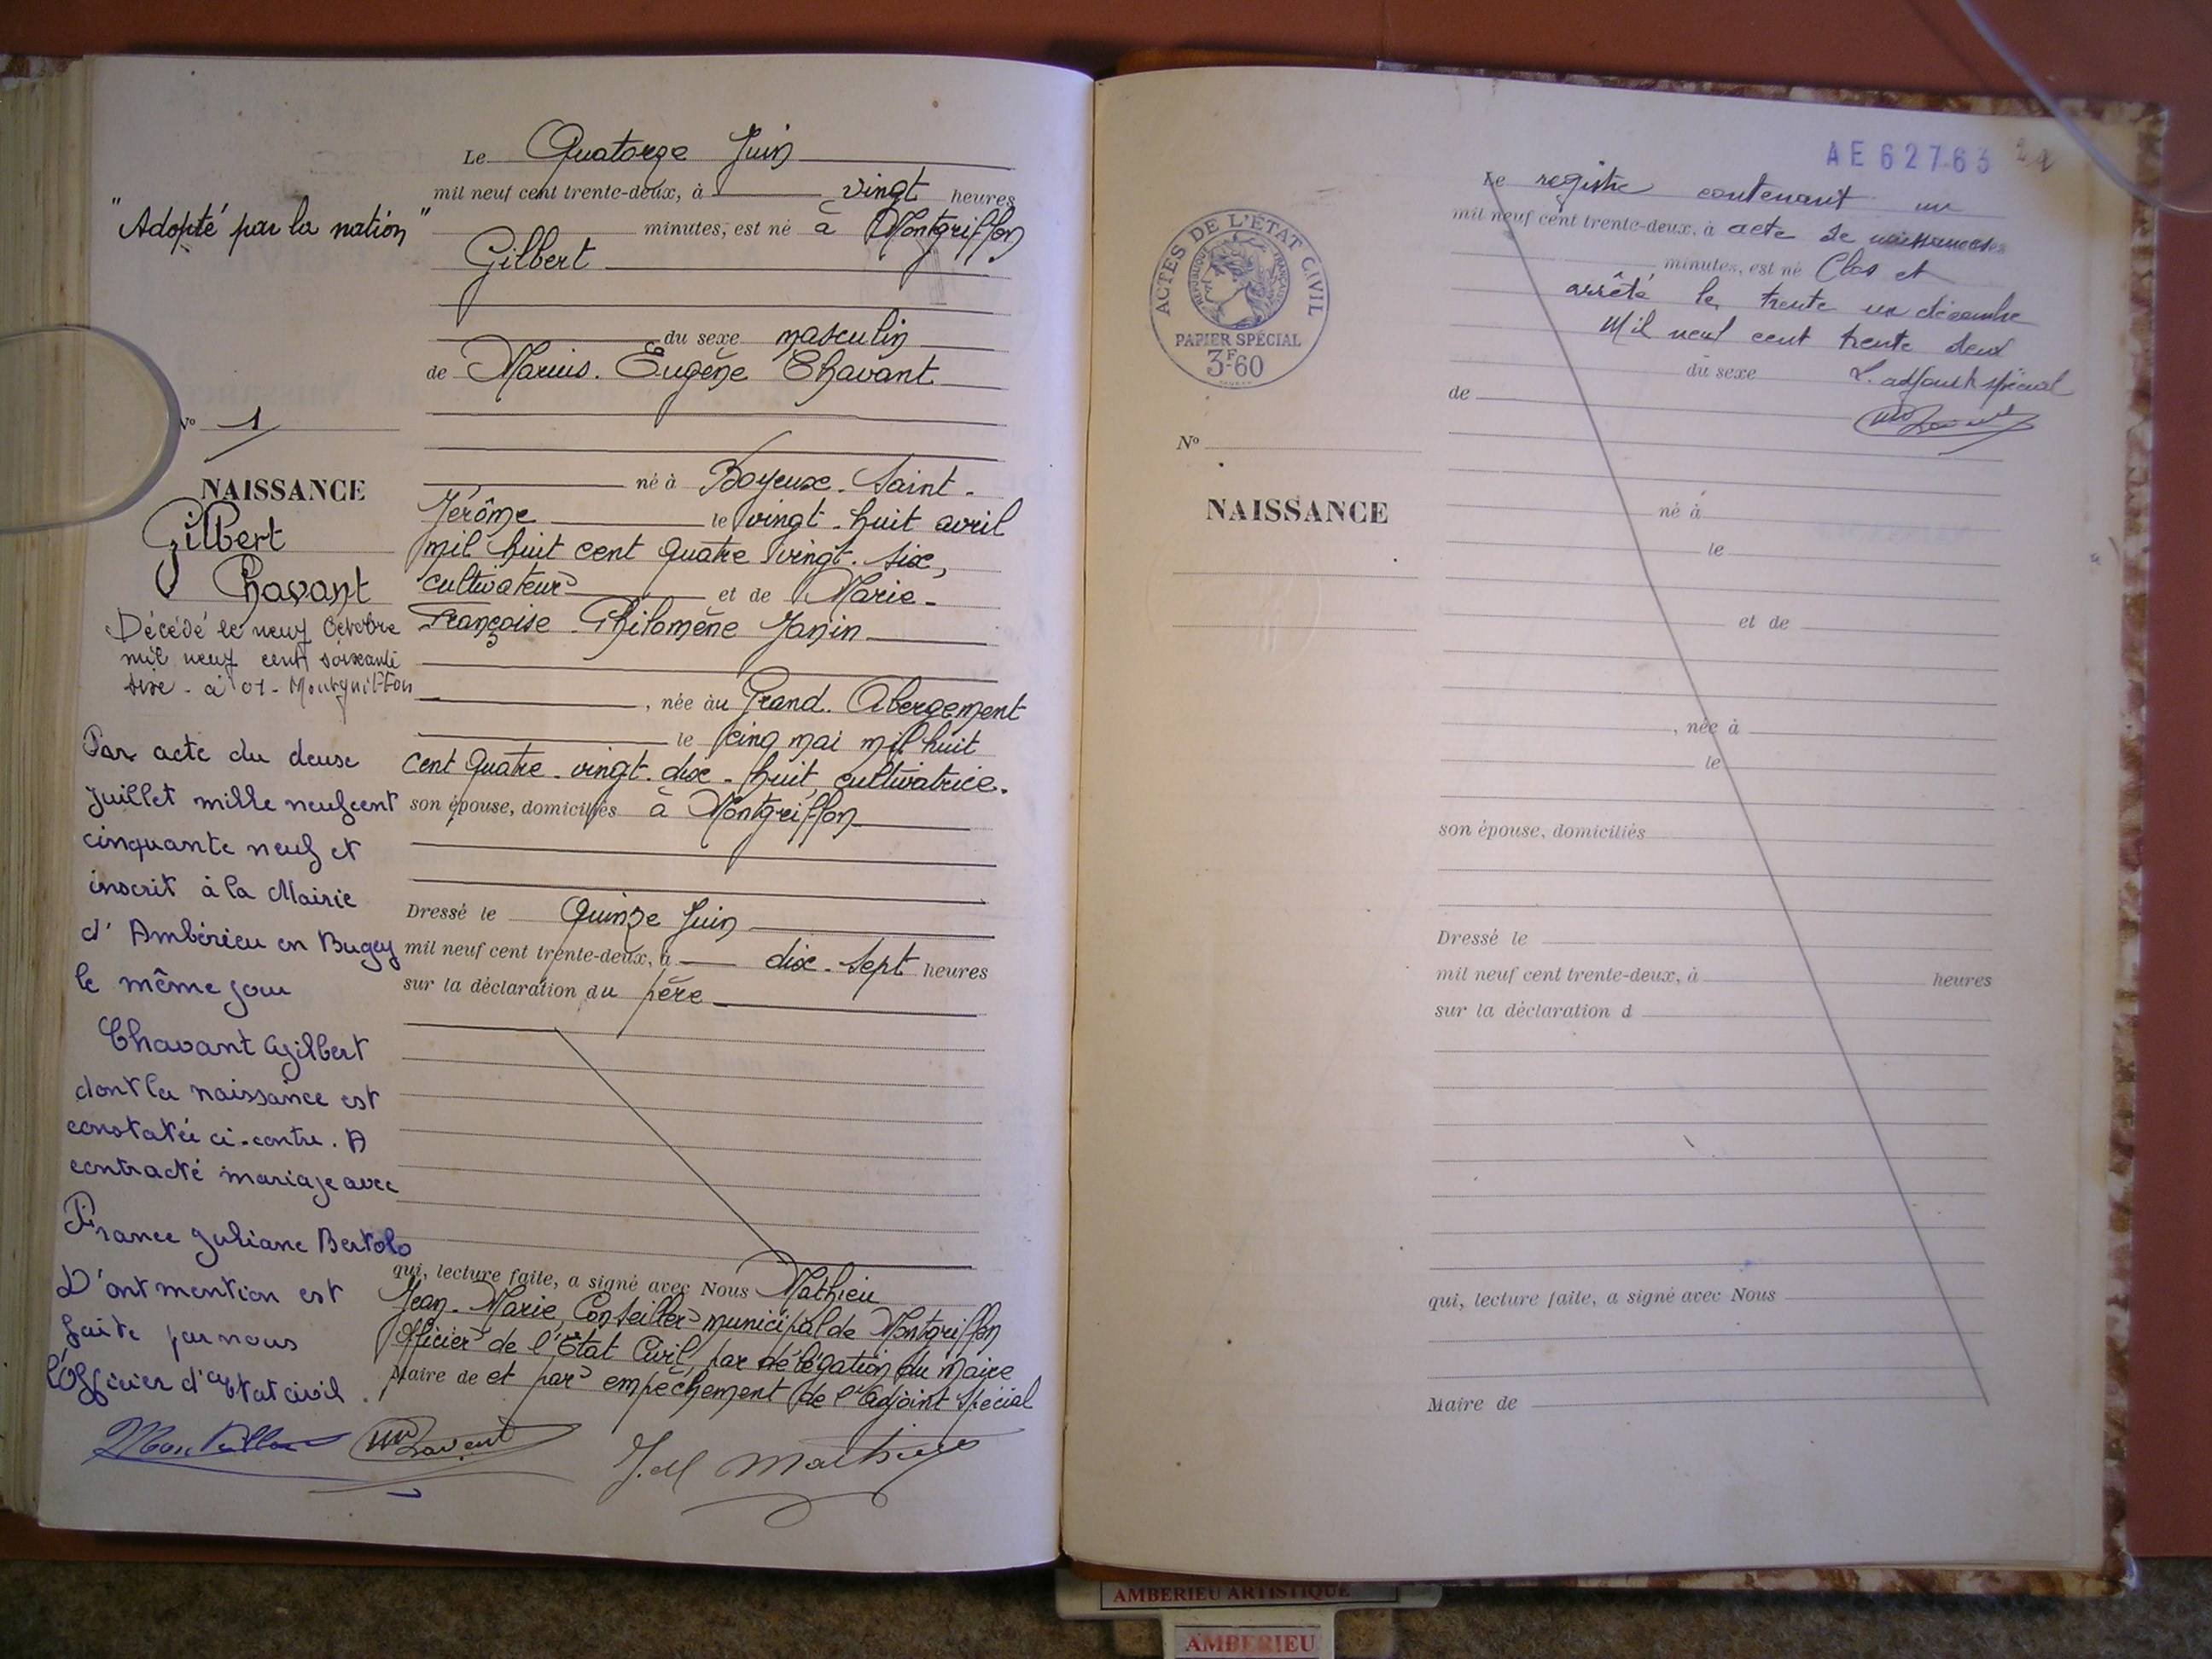 Le Quatorze Juin
mil neuf cent trente-deux, à vingt heures
minutes, est né à Montgriffon
Gilbert
du sexe masculin
de Marius. Eugène Chavant
né à Boyeux. Saint.
Jérôme le vingt. huit avril
mil huit cent quatre vingt. six,
cultivateur et de Marie.
Françoise. Philomène Janin
, née au Grand. Abergement
le cinq mai mil huit
cent quatre. vingt. dix. huit, cultivatrice.
son épouse, domiciliés à Montgriffon
Dressé le Quinze Juin
mil neuf cent trente-deux, à dix. sept heures
sur la déclaration du père
qui, lecture faite, a signé avec Nous Mathieu
Jean. Marie, Conseiller municipal de Montgriffon
Officier de l'État Civil, par délégation du Maire
Maire de et par empêchement de l'adjoint spécial
J. M Mathieu
"Adopté par la nation"
N° 1
NAISSANCE
Gilbert
Chavant
Décédé le neuf Octobre
mil neuf cent soixante
à 01 - Montgriffon
Par acte du deux
Juillet mille neuf cent
cinquante neuf et
inscrit à la Mairie
d'Ambérieu en Bugey
le même jour
Chavant Gilbert
dont la naissance est
constatée ci-contre. A
contracté mariage avec
France Juliane Bertolo
D'ont mention est
faite par nous
l'Officier d'Etat civil.
AE 62763
Le registre contenant un
mil neuf cent trente-deux, à acte de naissances
minutes, est né Clos et
arrêté le trente un décembre
Mil neuf cent trente deux
du sexe L. adjoint spécial
de
ACTES DE L'ÉTAT CIVIL
RÉPUBLIQUE FRANÇAISE
PAPIER SPÉCIAL
3F60
N°
NAISSANCE
né à
le
et de
, née à
le
son épouse, domiciliés
Dressé le
mil neuf cent trente-deux, à heures
sur la déclaration d
qui, lecture faite, a signé avec Nous
Maire de
AMBERIEU ARTISTIQUE
AMBERIEU